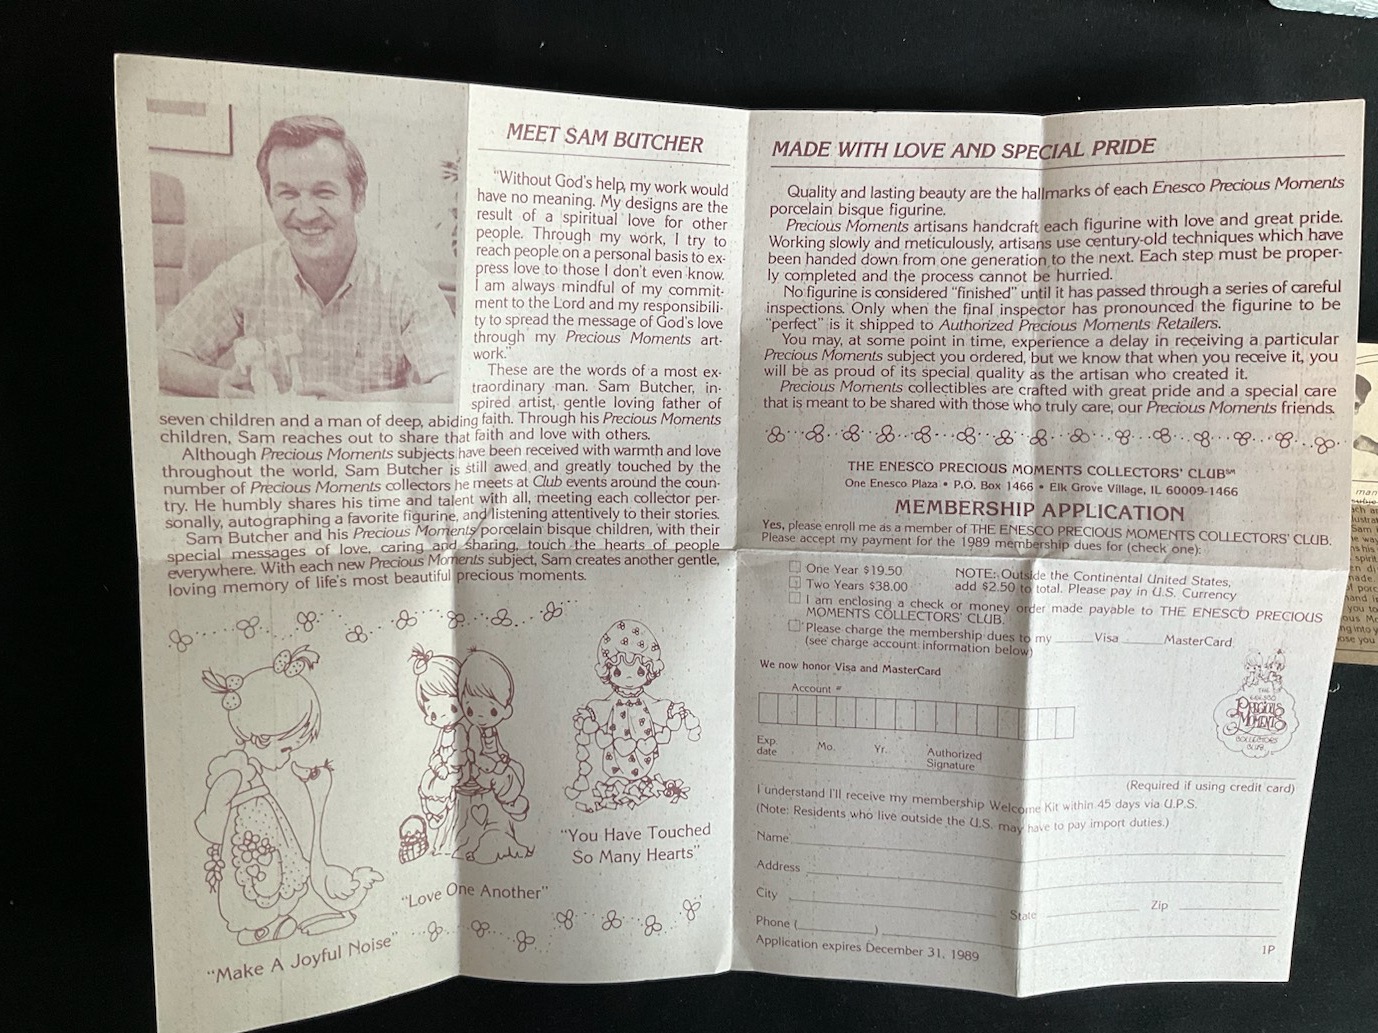 MEET SAM BUTCHER
"Without God's help, my work would
have no meaning. My designs are the
result of a spiritual love for other
people. Through my work, I try to
reach people on a personal basis to ex-
press love to those I don't even know.
I am always mindful of my commit-
ment to the Lord and my responsibili-
ty to spread the message of God's love
through my Precious Moments art-
work."
These are the words of a most ex-
traordinary man. Sam Butcher, in-
spired artist, gentle loving father of
seven children and a man of deep, abiding faith. Through his Precious Moments
children, Sam reaches out to share that faith and love with others.
Although Precious Moments subjects have been received with warmth and love
throughout the world, Sam Butcher is still awed and greatly touched by the
number of Precious Moments collectors he meets at Club events around the coun-
try. He humbly shares his time and talent with all, meeting each collector per-
sonally, autographing a favorite figurine, and listening attentively to their stories.
Sam Butcher and his Precious Moments porcelain bisque children, with their
special messages of love, caring and sharing, touch the hearts of people
everywhere. With each new Precious Moments subject, Sam creates another gentle,
loving memory of life's most beautiful precious moments.
"You Have Touched
So Many Hearts"
"Love One Another"
"Make A Joyful Noise"
MADE WITH LOVE AND SPECIAL PRIDE
Quality and lasting beauty are the hallmarks of each Enesco Precious Moments
porcelain bisque figurine.
Precious Moments artisans handcraft each figurine with love and great pride.
Working slowly and meticulously, artisans use century-old techniques which have
been handed down from one generation to the next. Each step must be proper-
ly completed and the process cannot be hurried.
No figurine is considered "finished" until it has passed through a series of careful
inspections. Only when the final inspector has pronounced the figurine to be
"perfect" is it shipped to Authorized Precious Moments Retailers.
You may, at some point in time, experience a delay in receiving a particular
Precious Moments subject you ordered, but we know that when you receive it, you
will be as proud of its special quality as the artisan who created it.
Precious Moments collectibles are crafted with great pride and a special care
that is meant to be shared with those who truly care, our Precious Moments friends.
THE ENESCO PRECIOUS MOMENTS COLLECTORS' CLUB℠
One Enesco Plaza • P.O. Box 1466 • Elk Grove Village, IL 60009-1466
MEMBERSHIP APPLICATION
Yes, please enroll me as a member of THE ENESCO PRECIOUS MOMENTS COLLECTORS' CLUB.
Please accept my payment for the 1989 membership dues for (check one):
One Year $19.50 NOTE: Outside the Continental United States,
Two Years $38.00 add $2.50 to total. Please pay in U.S. Currency
I am enclosing a check or money order made payable to THE ENESCO PRECIOUS
MOMENTS COLLECTORS' CLUB.
Please charge the membership dues to my ____ Visa ____ MasterCard
(see charge account information below)
We now honor Visa and MasterCard
Account #
Exp. date Mo. Yr. Authorized Signature
(Required if using credit card)
THE
ENESCO
PRECIOUS
MOMENTS
COLLECTORS'
CLUB
I understand I'll receive my membership Welcome Kit within 45 days via U.P.S.
(Note: Residents who live outside the U.S. may have to pay import duties.)
Name
Address
City State Zip
Phone ( )
Application expires December 31, 1989
1P